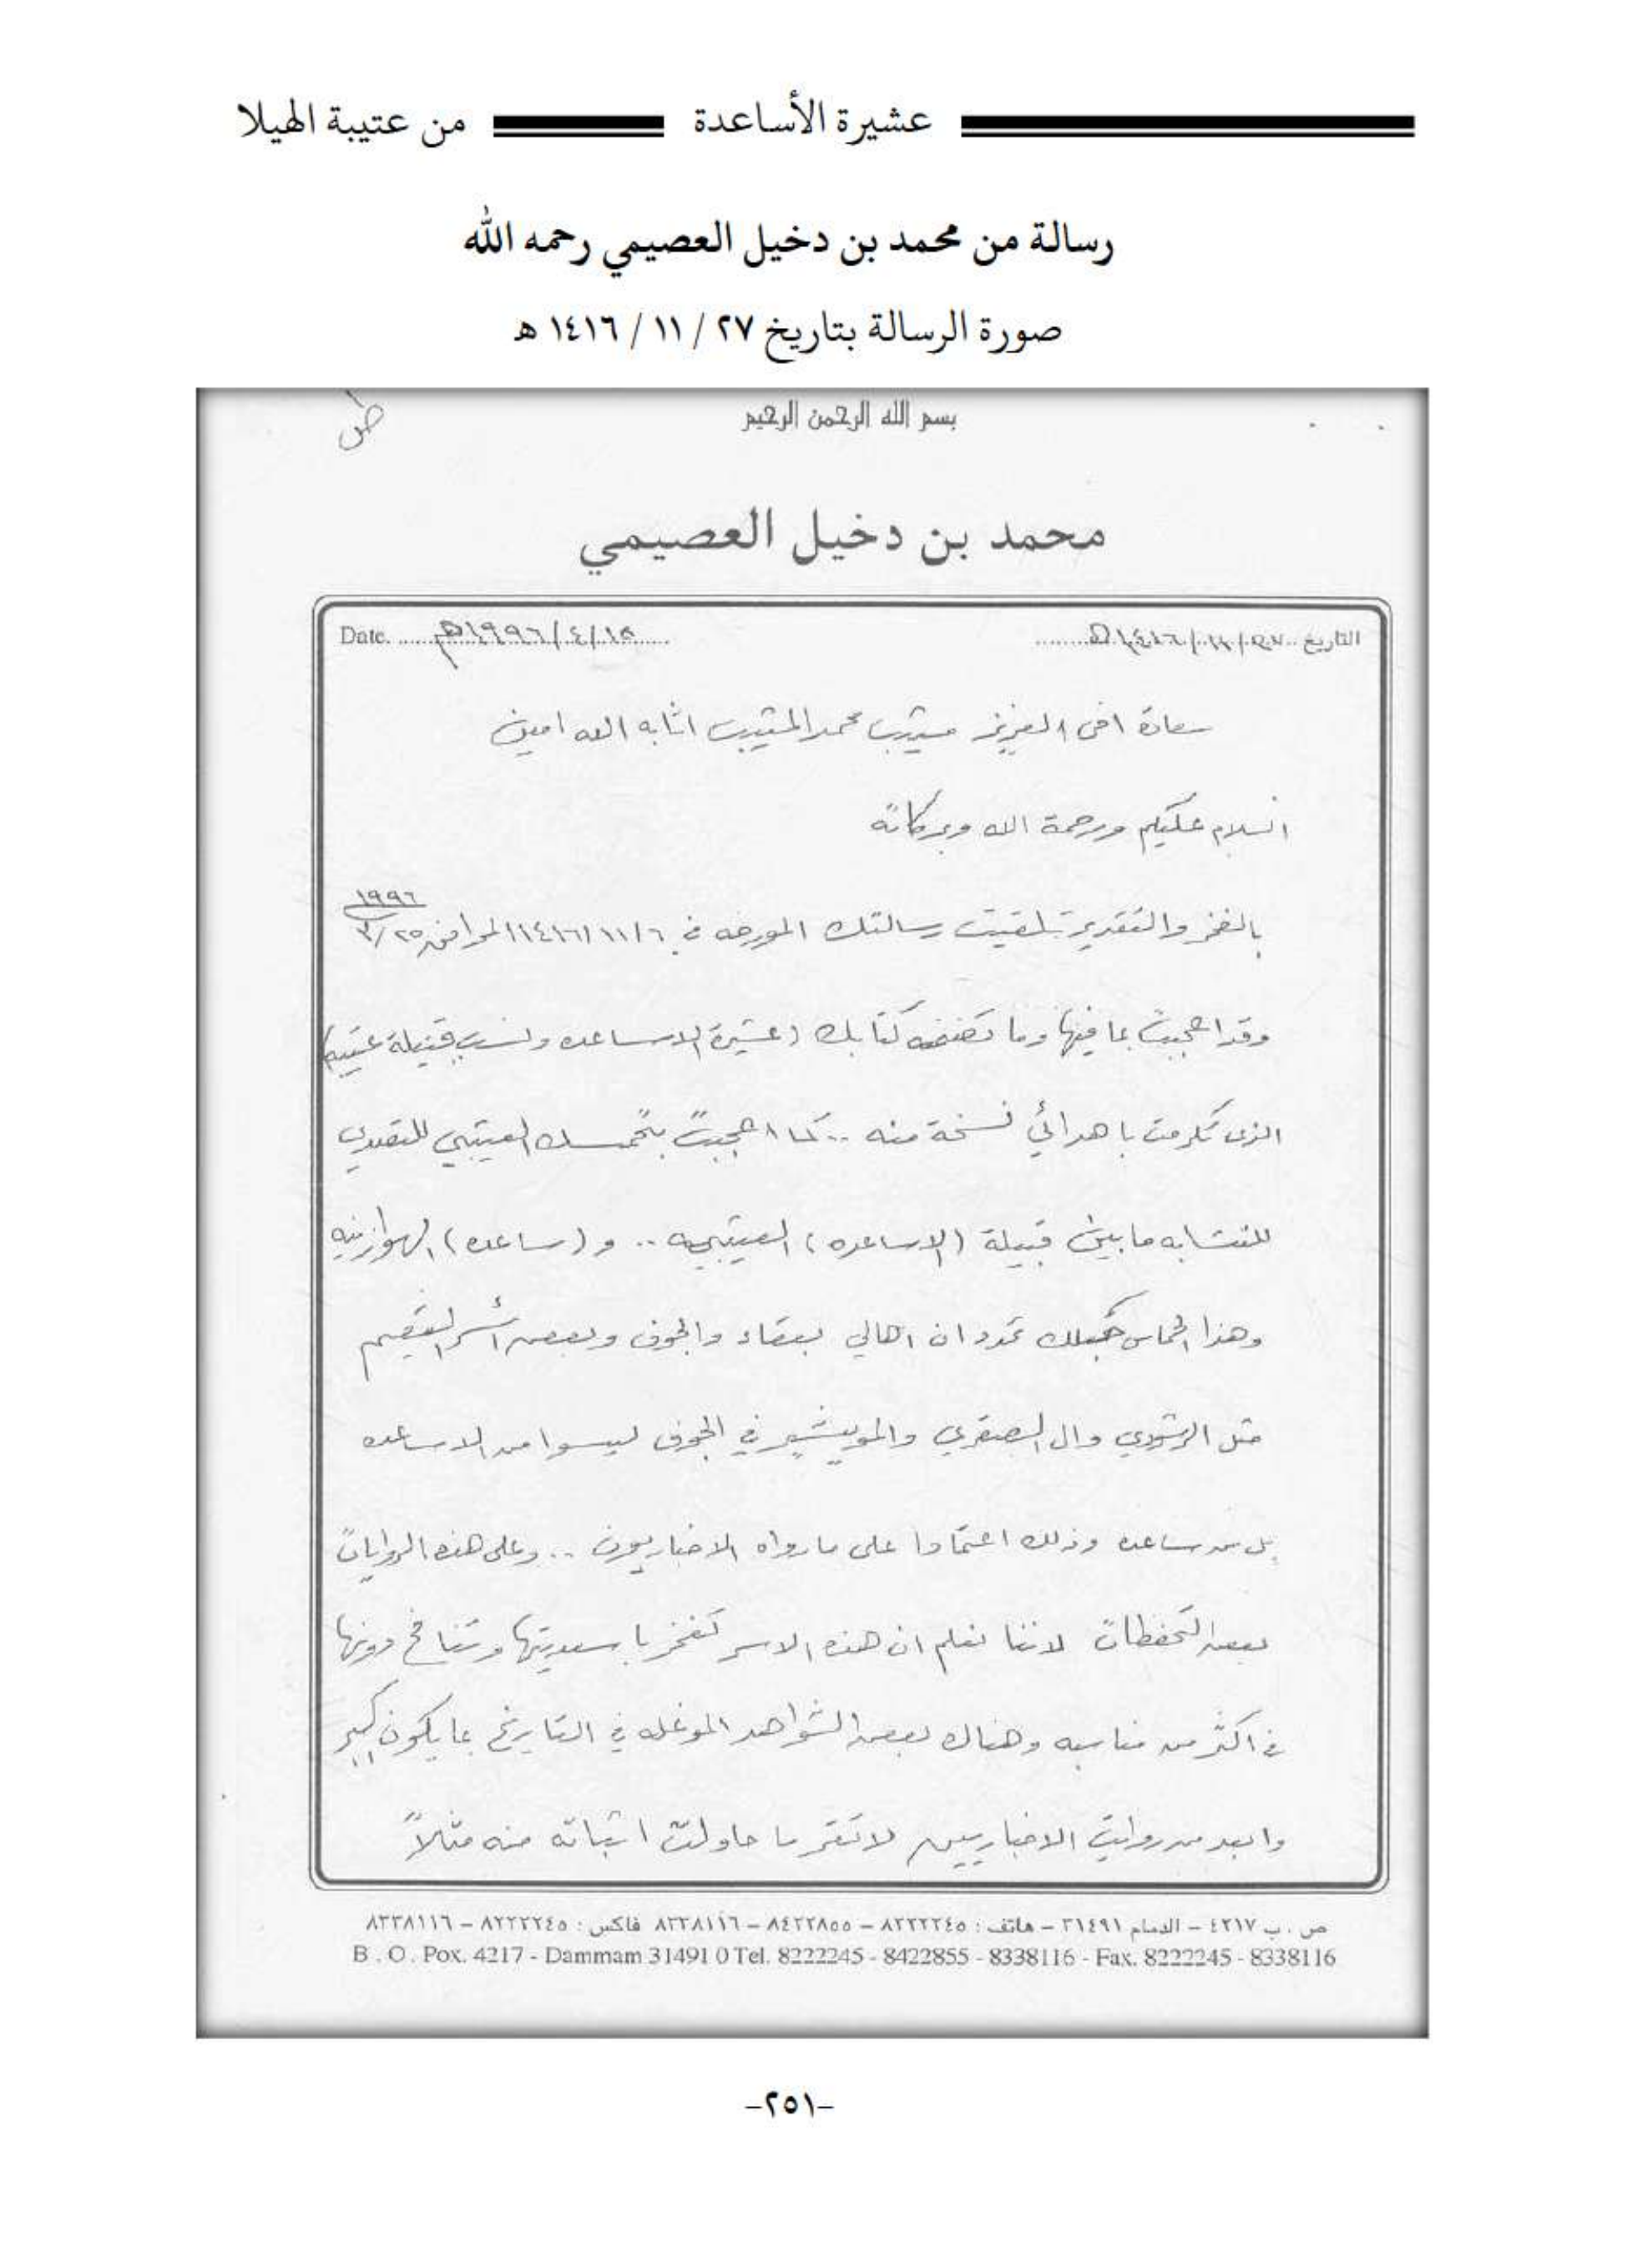 عشيرة الأساعدة من عتيبة الهيلا
رسالة من محمد بن دخيل العصيمي رحمه الله
صورة الرسالة بتاريخ ٢٧ / ١١ / ١٤١٦ هـ
بسم الله الرحمن الرحيم
محمد بن دخيل العصيمي
التاريخ ٢٧/١١/١٤١٦هـ Date.
سعادة اخي العزيز مشيب محمد المشيب اثابه الله امين
السلام عليكم ورحمة الله وبركاته
بالفخر والتقدير تلقيت رسالتك المورخه في ١٤١٦/١١/٦ الموافق ٣/٢٥ ١٩٩٦
وقد اعجبت بما فيها وما تضمنه كتابك (عشيرة الاساعده ونسب قبيلة عتيبه)
الذى تكرمت باهدائي نسخة منه .. كما اعجبت بتحمسك العتيبي للتصدي
للتشابه ما بين قبيلة (الاساعده) العتيبيه .. و (ساعده) الهوازنيه
وهذا الحماس جعلك تحدد ان اهالي بقعاء والجوف وبعض أسر القصيم
مثل الرشودي وال الصقري والمويشير في الجوف ليسوا من الاساعده
بل من ساعده وذلك اعتمادا على مارواه الاخباريون .. وعلى هذه الروايات
بعض التحفظات لاننا نعلم ان هذه الاسر تفخر باسعديتها وتنافح دونها
في اكثر من مناسبه وهناك بعض الشواهد الموغله في التاريخ بما يكون اكبر
وابعد من روايت الاخباريين لاتقر ما حاولت اثباته منه مثلاً
ص . ب ٤٢١٧ – الدمام ٣١٤٩١ – هاتف : ٨٢٢٢٢٤٥ – ٨٤٢٢٨٥٥ – ٨٣٣٨١١٦ فاكس : ٨٢٢٢٢٤٥ – ٨٣٣٨١١٦
B . O . Pox. 4217 - Dammam 31491 0 Tel. 8222245 - 8422855 - 8338116 - Fax. 8222245 - 8338116
-٢٥١-